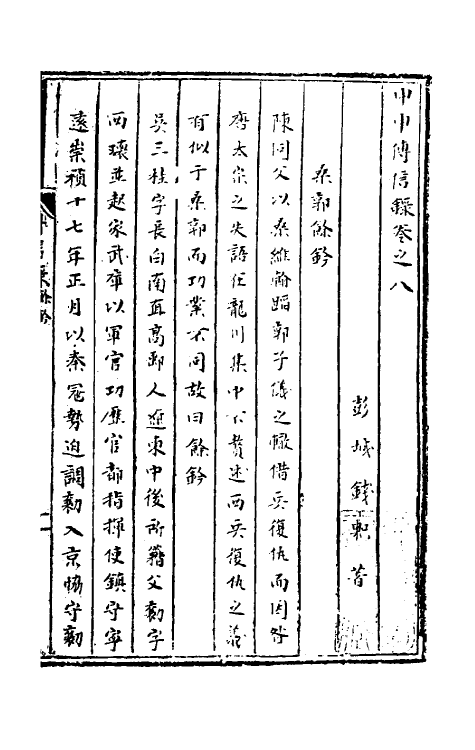 甲申傳信錄卷之八
彭城錢㪋著
桑郭餘鈐
陳同父以桑維翰蹈郭子儀之轍借兵復仇而因咎
唐太宗之失語在龍川集中不贅述西兵復仇之
有似于桑郭而功業不同故曰餘鈐
吳三桂字長白南直高郵人遼東中後所籍父勷字
西環並起家武庫以軍官功歷官都指揮使鎮守寧
遠崇禎十七年正月以秦冦勢迫調勷入京協守勷
餘鈐